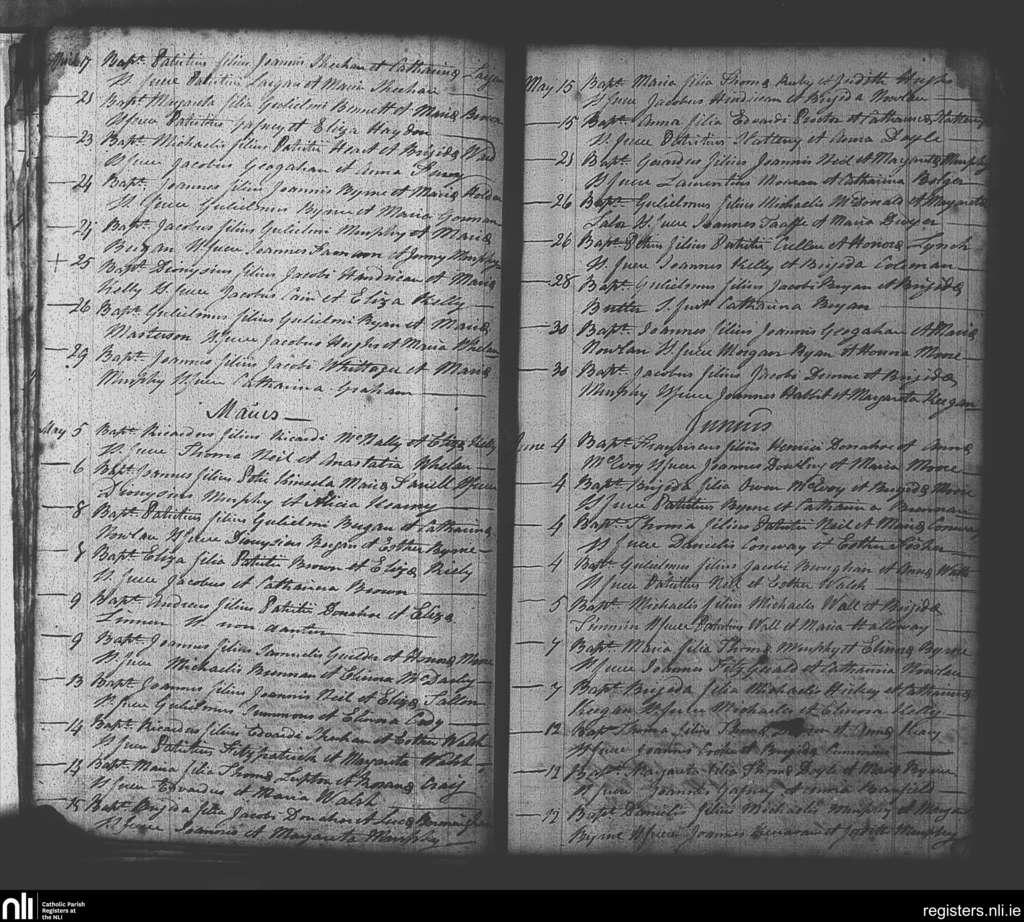 April 17 Bapt. Patritius filius Joannis Sheehan et Catharinæ
Ss fuere Patritius Largan et Maria Sheehan
21 Bapt. Margarita filia Gulielmi Bennett et Mariæ
Ss fuere Patritius et Eliza Haydon
23 Bapt. Michaelis filius Patritii Heart et Brigidæ Ward
Ss fuere Jacobus Geogahan et Anna
24 Bapt. Joannes filius Joannis Byrne et Mariæ Holden
Ss fuere Gulielmus Byrne et Maria Gorman
24 Bapt. Jacobus filius Gulielmi Murphy et Mariæ
Ss fuere Joannes et Jenny Murphy
+ 25 Bapt. Dionysius filius Jacobi Handrican et Mariæ
Kelly Ss fuere Jacobus Cain et Eliza Kelly
26 Bapt. Gulielmus filius Gulielmi Ryan et Mariæ
Masterson Ss fuere Jacobus Hughes et Maria Whelan
29 Bapt. Joannis filius Jacobi Whittager et Mariæ
Murphy Ss fuere Catharina Graham
Maius
May 5 Bapt. Ricardus filius Ricardi McNally et Elizæ
Ss fuere Thoma Neil et Anastatia Whelan
6 Bapt. Joannes filius Mariæ Ss fuere
Dionysius Murphy et Alicia Kearny
8 Bapt. Patritius filius Gulielmi Bergan et Catharinæ
Nowlan Ss fuere Dionysius Bergin et Esther Byrne
8 Bapt. Eliza filia Patritii Brown et Elizæ
Ss fuere Jacobus et Catharina Brown
9 Bapt. Andreas filius Patritii Donahoe et Elizæ
Ss non dantur
9 Bapt. Joannes filius Samuelis et Honoræ Moore
Ss fuere Michaelis Brennan et Elenora McDarby
13 Bapt. Joannes filius Joannis Neil et Elizæ
Ss fuere Gulielmus Simmons et Elenora Cody
14 Bapt. Ricardus filius Edwardi et Esther Walsh
Ss fuere Patritius Fitzpatrick et Margarita Walsh
14 Bapt. Maria filia Thomæ et Roxanæ Craig
Ss fuere Edwardus et Maria Walsh
15 Bapt. Brigida filia Jacobi Donahoe et
Ss fuere Joannes et Margareta Murphy
May 15 Bapt. Maria filia Thomæ et Judith Hughes
Ss fuere Jacobus Hendrican et Brigida Nowlan
15 Bapt. Anna filia Edwardi et Catharinæ Slattery
Ss fuere Patritius Slattery et Anna Doyle
21 Bapt. Gerardus filius Joannis Neil et Margaritæ Murphy
Ss fuere Laurentius Moran et Catharina Bolger
26 Bapt. Gulielmus filius Michaelis McDonald et Margaritæ
Lalor Ss fuere Joannes Taaffe et Maria Dwyer
26 Bapt. filius Patritii Cullen et Honoræ Lynch
Ss fuere Joannes Kelly et Brigida Coleman
28 Bapt. Gulielmus filius Jacobi Bryan et Brigidæ
Butler S. fuit Catharina Bryan
30 Bapt. Joannes filius Joannis Geogahan et Mariæ
Nowlan Ss fuere Morgan Ryan et Honora Moore
30 Bapt. Jacobus filius Jacobi et Brigidæ
Murphy Ss fuere Joannes et Margarita Keegan
Junius
June 4 Bapt. Franciscus filius Henrici Donahoe et Annæ
McEvoy Ss fuere Joannes Dowling et Maria Moore
4 Bapt. Brigida filia Owen McEvoy et Brigidæ Moore
Ss fuere Patritius Byrne et Catharina Brennan
4 Bapt. Thoma filius Patritii Neil et Mariæ Conway
Ss fuere Danielis Conway et Esther Fisher
4 Bapt. Gulielmus filius Jacobi et Annæ Walsh
Ss fuere Patritius Neil et Esther Walsh
5 Bapt. Michaelis filius Michaelis Wall et Brigidæ
Ss fuere Patritius Wall et Maria Halloway
7 Bapt. Maria filia Thomæ Murphy et Elenoræ Byrne
Ss fuere Joannes FitzGerald et Catharina Nowlan
7 Bapt. Brigida filia Michaelis Hickey et Catharinæ
Keegan Ss fuere Michaelis et Elenora Kelly
12 Bapt. Thoma filius Thomæ et Annæ Keary
Ss fuere Joannes Cooke et Brigida Cummins
12 Bapt. Margareta filia Thomæ Doyle et Mariæ Byrne
Ss fuere Joannes Gafney et Anna Banfield
12 Bapt. Danielis filius Michaelis Murphy et
Byrne Ss fuere Joannes et Judith Murphy
nli
Catholic Parish
Registers at
the NLI
registers.nli.ie